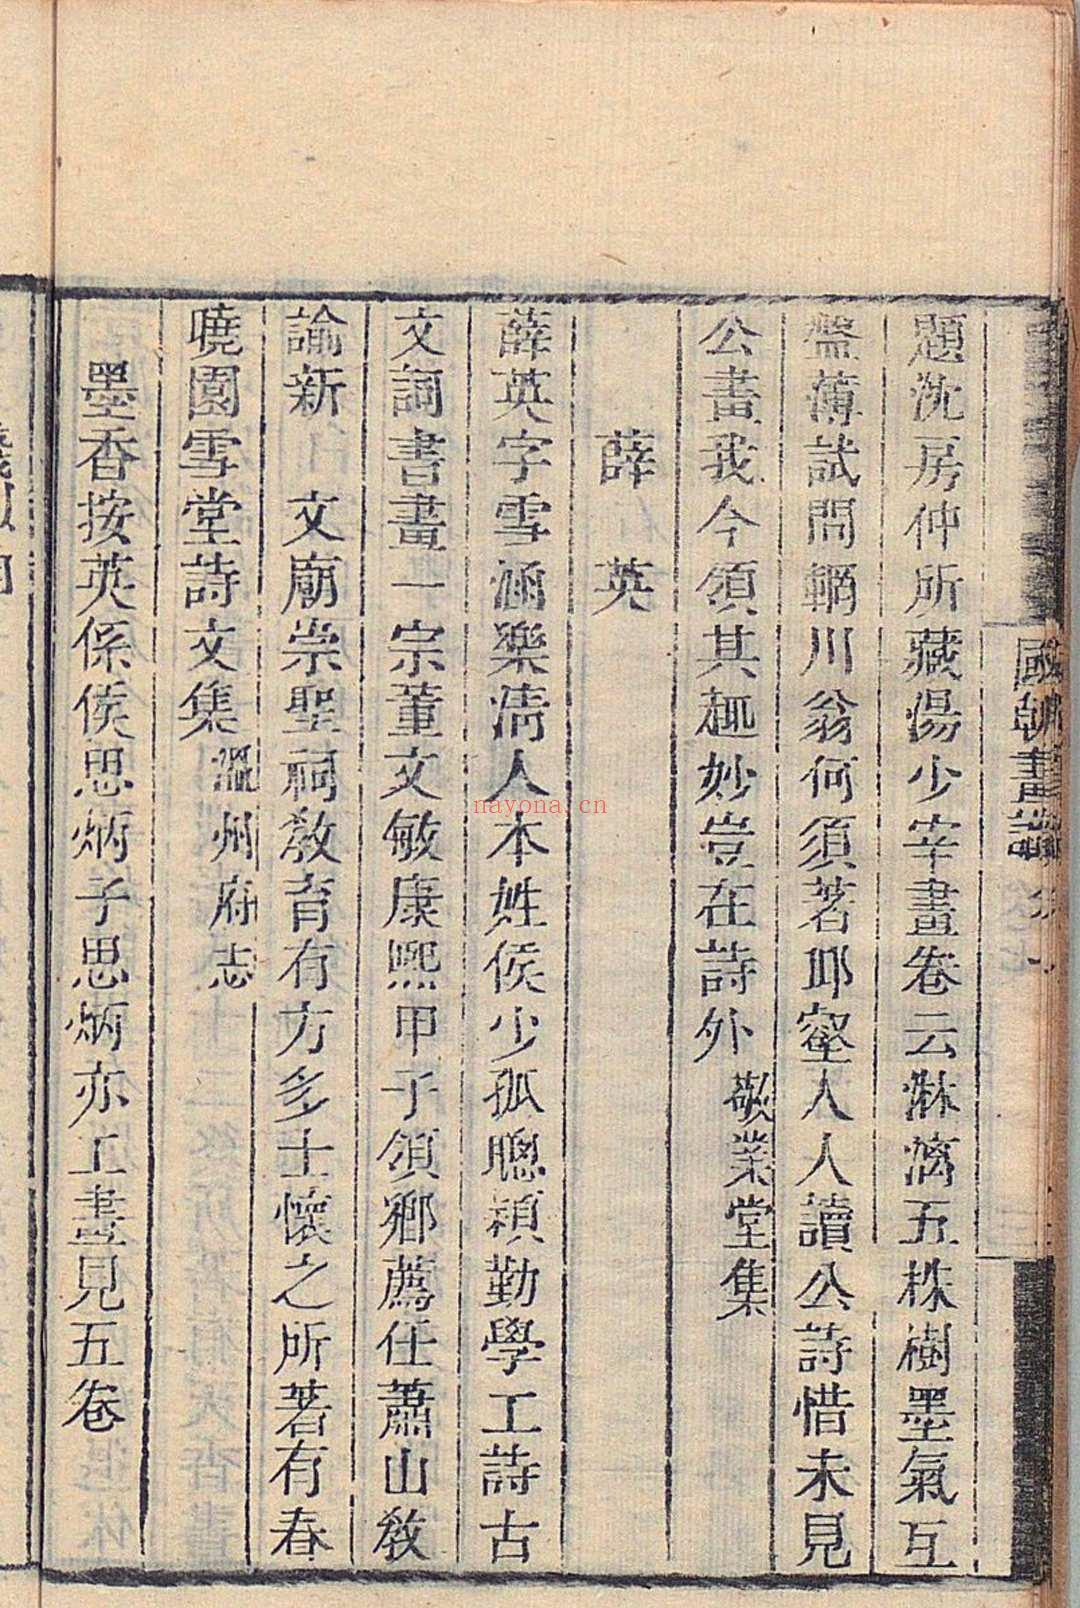 題沈房仲所藏湯少宰畫卷云淋漓五株樹墨氣互
盤薄試問輞川翁何須著邱壑人人讀公詩惜未見
公畫我今領其趣妙豈在詩外敬業堂集
薛英
薛英字雪涵樂清人本姓侯少孤聰穎勤學工詩古
文詞書畫一宗董文敏康熙甲子領鄉薦任蕭山教
諭新 文廟崇聖祠教育有方多士懷之所著有春
曉園雪堂詩文集溫州府志
墨香按英係侯思炳子思炳亦工畫見五卷
國朝畫識
nayona.cn